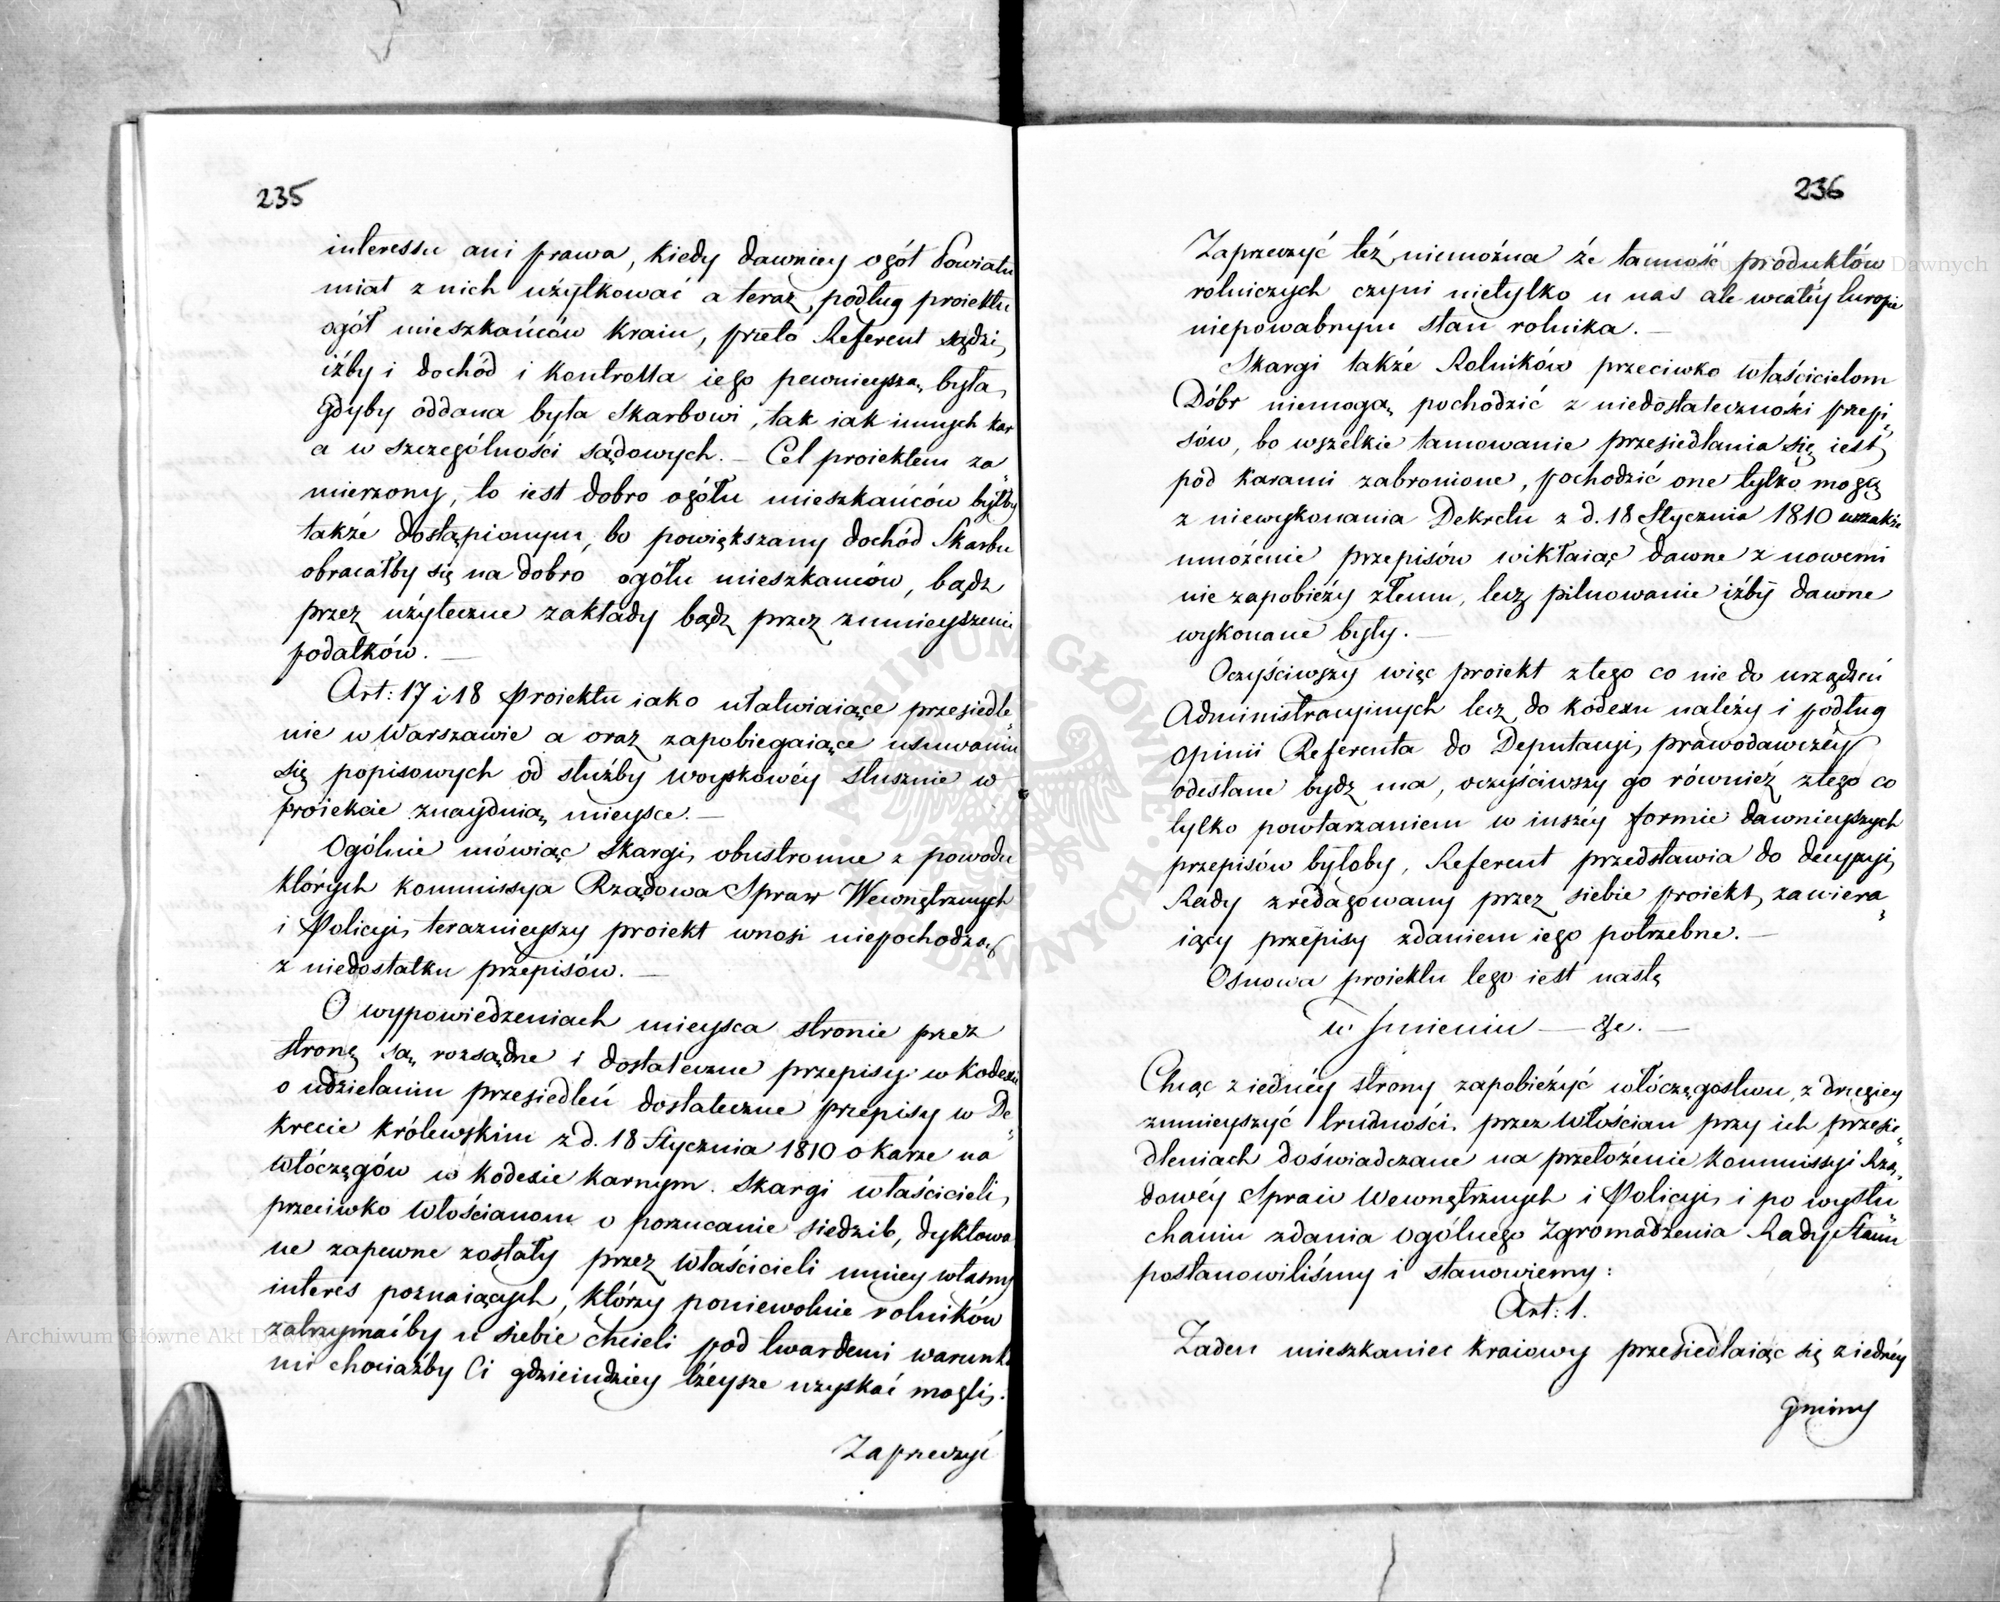 235
interessu ani prawa, kiedy dawniey ogół Powiatu
miał z nich użytkować a teraz, podług proiektu
ogół mieszkańców kraiu, przeto Referent sądzi,
iżby i dochód i kontrolla iego pewnieysza, była,
gdyby oddana była Skarbowi, tak iak innych kar
a w szczególności sądowych. – Cel proiektem za
mierzony, to iest dobro ogółu mieszkańców byłby
także dostąpionym, bo powiększany dochód Skarbu
obracałby się na dobro ogółu mieszkańców, bądz
przez użyteczne zakłady bądz przez zmnieyszenie
podatków. –
Art: 17 i 18 Proiektu iako ułatwiaiące przesiedle„
nie w Warszawie a oraz zapobiegaiące usuwaniu
się popisowych od służby woyskowéy słusznie w
proiekcie znayduią mieysce. –
Ogólnie mówiąc skargi, obustronne z powodu
których kommissya Rządowa Spraw Wewnętrznych
i Policyi, teraznieyszy proiekt wnosi niepochodzą
z niedostatku przepisów. –
O wypowiedzeniach mieysca stronie przez
stronę są, rozsądne i dostateczne przepisy w kodexie
o udzielaniu przesiedleń dostateczne przepisy w De„
krecie królewskim z d. 18 Stycznia 1810 o karze na
włóczęgów w kodexie karnym. Skargi właścicieli,
przeciwko włościanom o porzucanie siedzib, dyktowa
ne zapewne zostały przez właścicieli mniey własny
interes poznaiących, którzy poniewolnie rolników
zatrzymaćby u siebie chcieli pod twardemi warunka
mi chociażby Ci gdzieindziey lżeysze uzyskać mogli.
Zaprzeczyć
236
Zaprzeczyć też niemożna że taniość produktów
rolniczych czyni nietylko u nas ale w całéy Europie
niepowabnym stan rolnika. –
Skargi także Rolników przeciwko właścicielom
Dóbr niemogą, pochodzić z niedostateczności przepi„
sów, bo wszelkie tamowanie przesiedlania się iest
pod karami zabronione, pochodzić one tylko mogą
z niewykonania Dekretu z d. 18 Stycznia 1810 wszakże
mnożenie przepisów wikłaiąc dawne z nowemi
nie zapobieży złemu, lecz pilnowanie iżby dawne
wykonane były. –
Oczyściwszy więc proiekt z tego co nie do urządzeń
Administracyinych lecz do kodexu należy i podług
opinii Referenta do Deputacyi, prawodawczéy
odesłane bydz ma, oczyściwszy go również z tego co
tylko powtarzaniem w inszéy formie dawnieyszych
przepisów byłoby, Referent przedstawia do decyzyi,
Rady zredagowany przez siebie proiekt, zawiera„
iący przepisy zdaniem iego potrzebne. –
Osnowa proiektu tego iest nastę
w Jmieniu – &c. –
Chcąc z iednéy strony zapobieżyć włóczęgostwu, z drugiey
zmnieyszyć trudności, przez włościan przy ich przesie„
dleniach doświadczane na przełożenie Kommissyi Rzą„
dowéy Spraw Wewnętrznych i Policyi, i po wysłu„
chaniu zdania Ogólnego Zgromadzenia Rady Stanu
postanowiliśmy i stanowiemy:
Art: 1.
Żaden mieszkaniec kraiowy przesiedlaiąc się z iednéy
gminy
Archiwum Główne Akt Dawnych